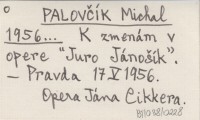 PALOVČÍK Michal
1956... K zmenám v
opere "Juro Jánošík".
– Pravda 17.V.1956.
Opera Jána Cikkera.